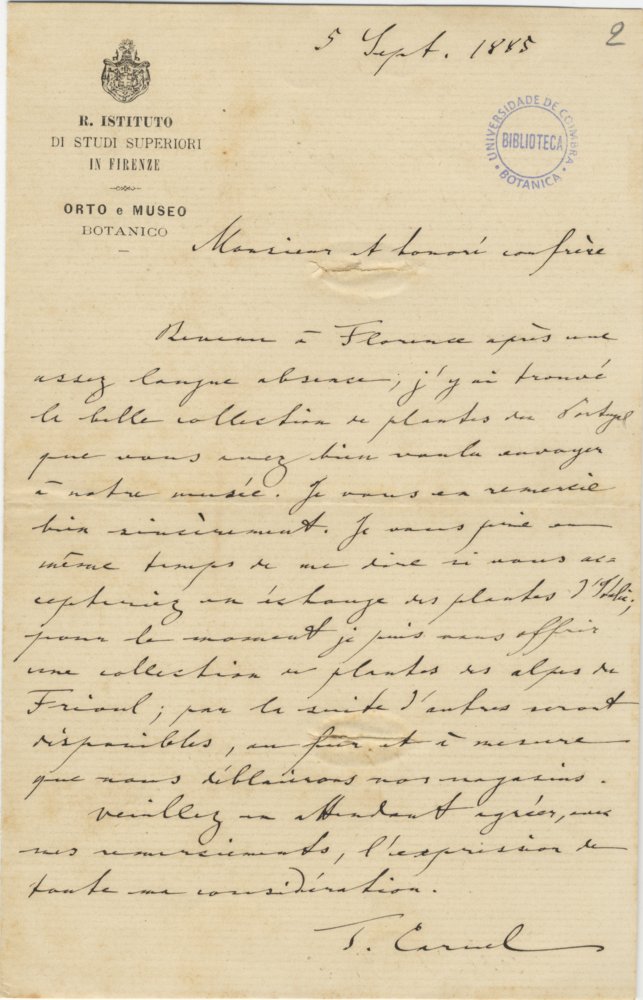 5 Sept. 1885
2
R. ISTITUTO
DI STUDI SUPERIORI
IN FIRENZE
ORTO e MUSEO
BOTANICO
UNIVERSIDADE DE COIMBRA
BIBLIOTECA
BOTANICA
Monsieur et honoré confrère
Revenu à Florence après une
assez longue absence, j'y ai trouvé
la belle collection de plantes du Portugal
que vous avez bien voulu envoyer
à notre musée. Je vous en remercie
bien sincèrement. Je vous prie en
même temps de me dire si vous ac-
cepteriez en échange des plantes d'Italie;
pour le moment je puis vous offrir
une collection de plantes des alpes du
Frioul; par la suite d'autres seront
disponibles, au fur et à mesure
que nous déblaierons nos magasins.
Veuillez en attendant agréer, avec
mes remerciements, l'expression de
toute ma considération.
T. Caruel